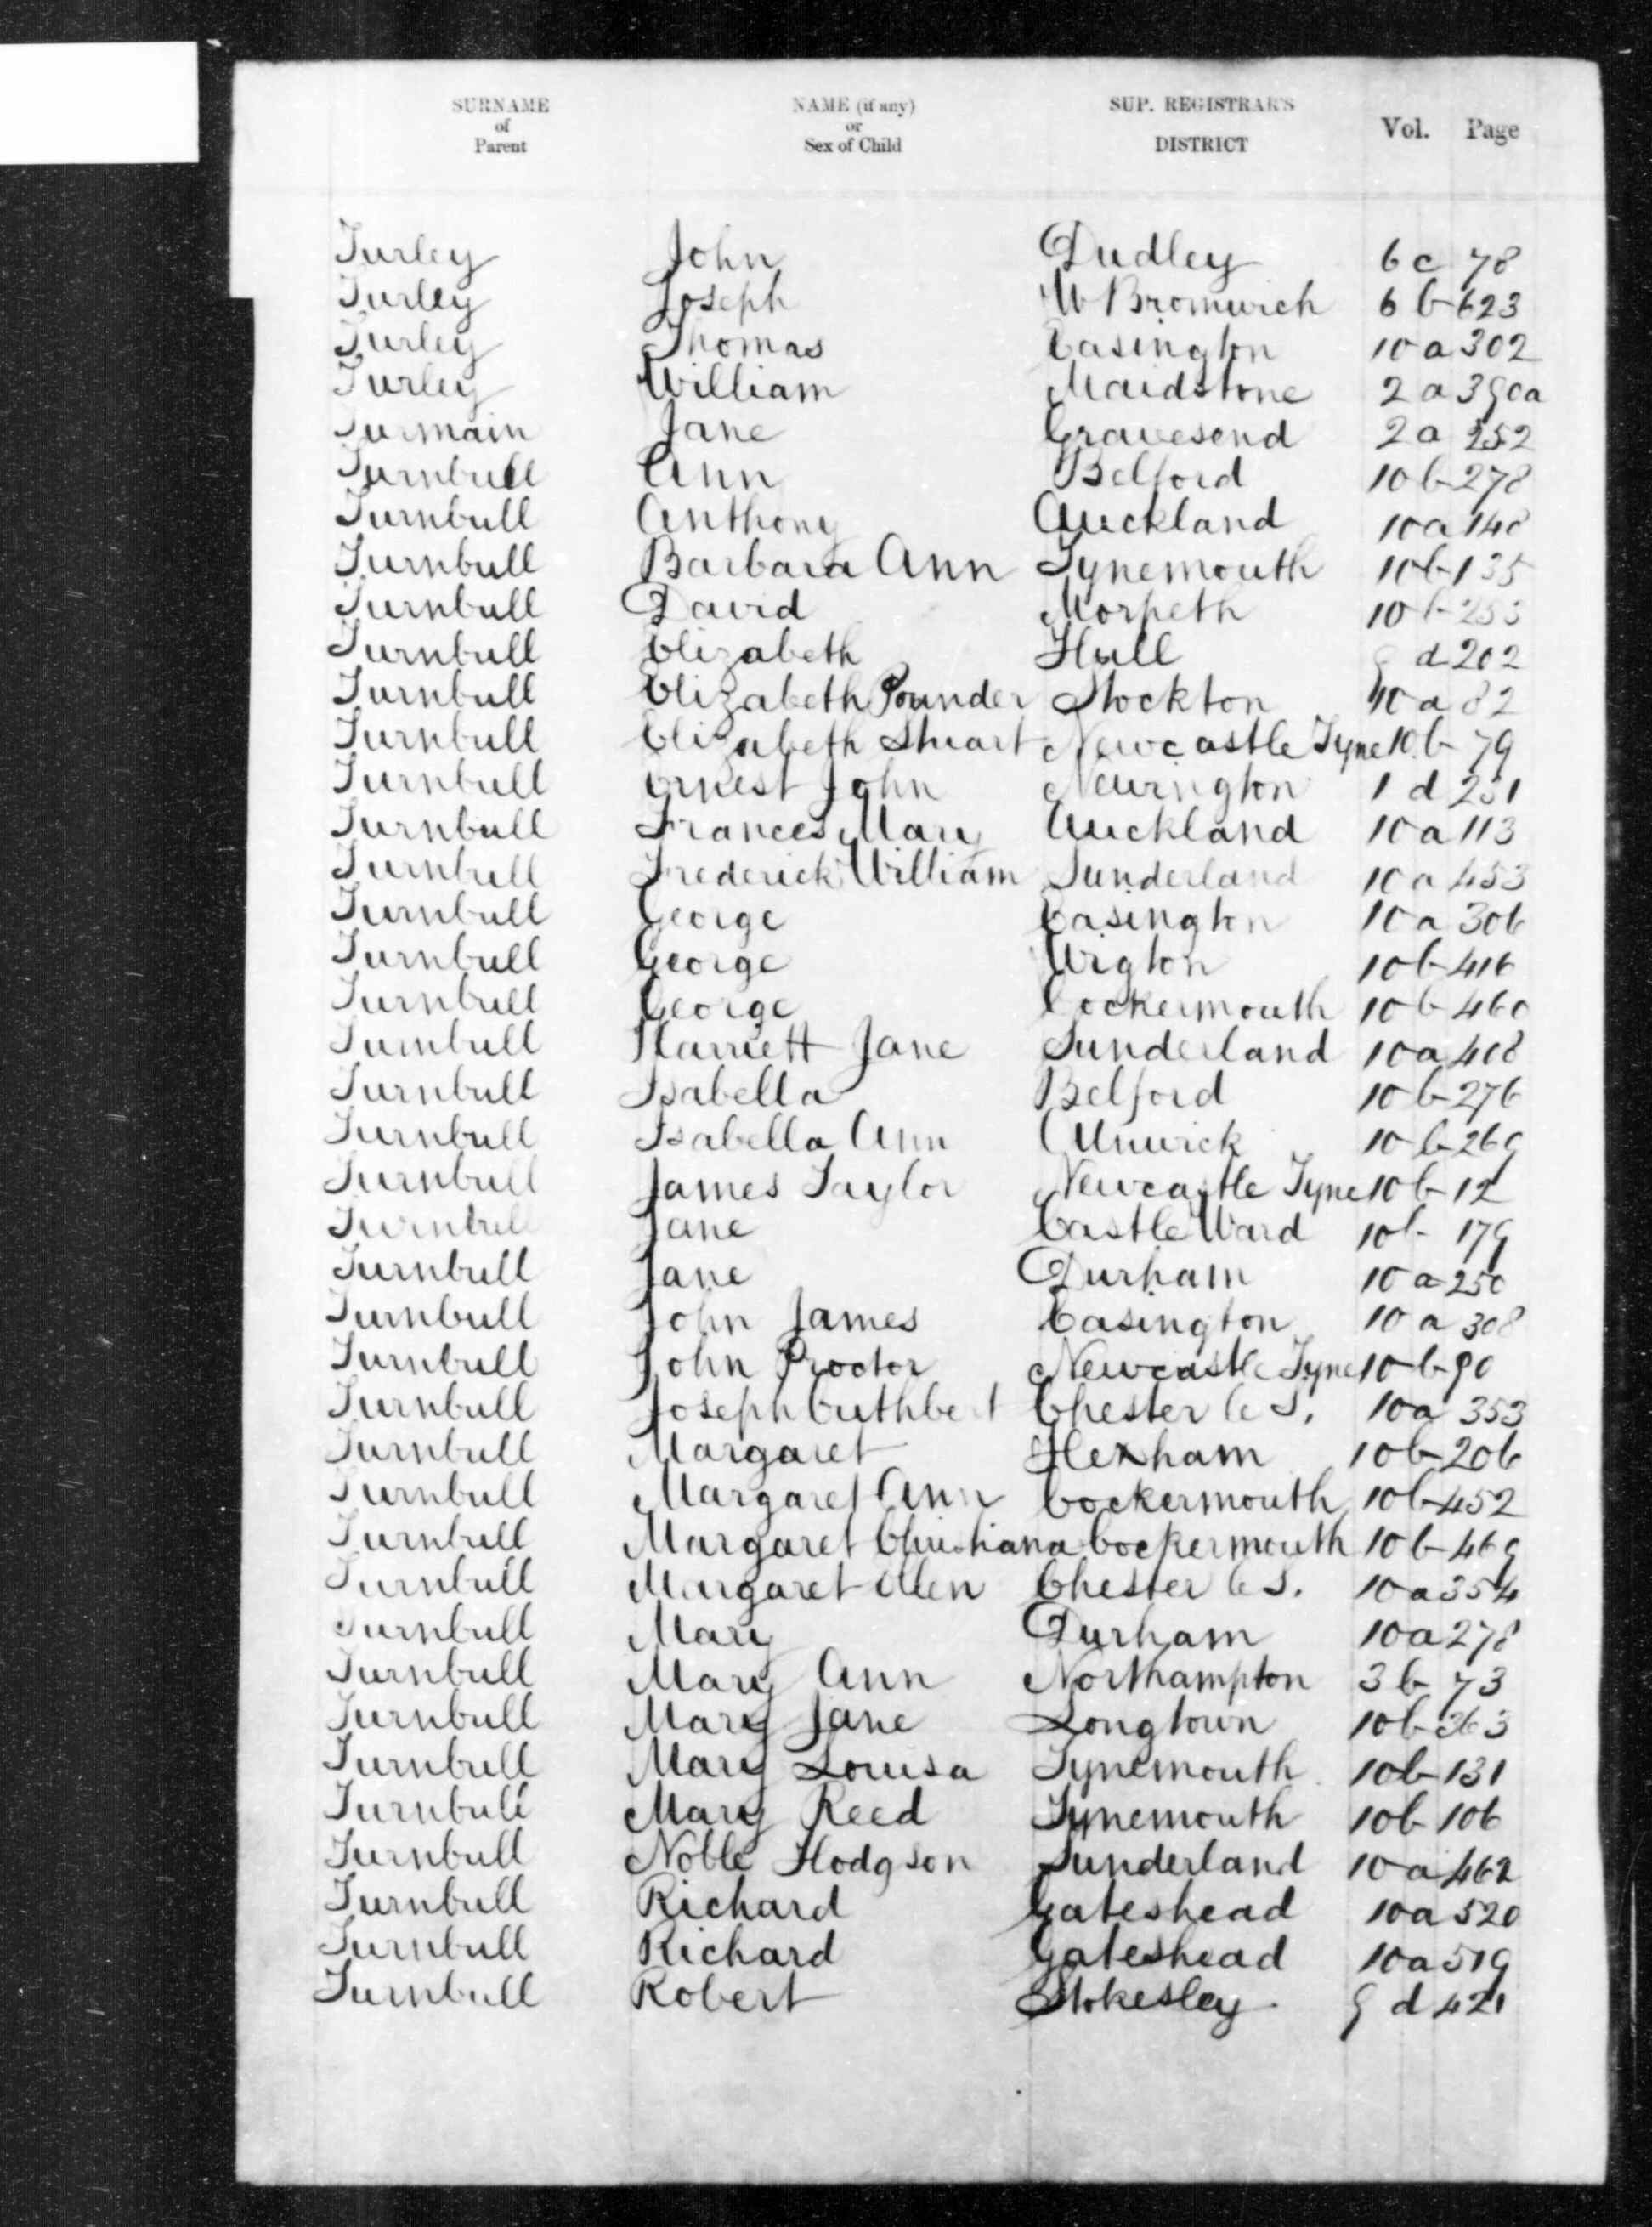 SURNAME of Parent NAME (if any) or Sex of Child SUP. REGISTRAR'S DISTRICT Vol. Page
Turley John Dudley 6c 78
Turley Joseph W Bromwich 6b 623
Turley Thomas Easington 10a 302
Turley William Maidstone 2a 390a
Turmain Jane Gravesend 2a 252
Turnbull Ann Belford 10b 278
Turnbull Anthony Auckland 10a 148
Turnbull Barbara Ann Tynemouth 10b 135
Turnbull David Morpeth 10b
Turnbull Elizabeth Hull 9d 202
Turnbull Elizabeth Pounder Stockton 10a 82
Turnbull Elizabeth Stuart Newcastle Tyne 10b 79
Turnbull Ernest John Newington 1d 231
Turnbull Frances Mary Auckland 10a 113
Turnbull Frederick William Sunderland 10a 453
Turnbull George Easington 10a 306
Turnbull George Wigton 10b 416
Turnbull George Cockermouth 10b 460
Turnbull Harriett Jane Sunderland 10a 408
Turnbull Isabella Belford 10b 276
Turnbull Isabella Ann Alnwick 10b 269
Turnbull James Taylor Newcastle Tyne 10b 12
Turnbull Jane Castle Ward 10b 179
Turnbull Jane Durham 10a 250
Turnbull John James Easington 10a 308
Turnbull John Proctor Newcastle Tyne 10b 90
Turnbull Joseph Cuthbert Chester le S. 10a 353
Turnbull Margaret Hexham 10b 206
Turnbull Margaret Ann Cockermouth 10b 452
Turnbull Margaret Christiana Cockermouth 10b 469
Turnbull Margaret Ellen Chester le S. 10a 354
Turnbull Mary Durham 10a 278
Turnbull Mary Ann Northampton 3b 73
Turnbull Mary Jane Longtown 10b 363
Turnbull Mary Louisa Tynemouth 10b 131
Turnbull Mary Reed Tynemouth 10b 106
Turnbull Noble Hodgson Sunderland 10a 462
Turnbull Richard Gateshead 10a 520
Turnbull Richard Gateshead 10a 519
Turnbull Robert Stokesley 9d 421